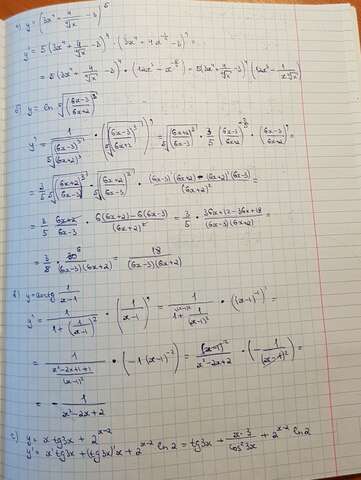 а) y = (3x⁴ - 4/⁴√x - 3)⁵
y' = 5(3x⁴ + 4/⁴√x - 3)⁴ · (3x⁴ - 4x^(-1/4) - 3)' =
= 5(3x⁴ + 4/⁴√x - 3)⁴ · (12x³ - x^(-5/4)) = 5(3x⁴ + 4/⁴√x - 3)⁴ (12x³ - 1/(x⁴√x))
б) y = ln ⁵√((6x-3)/(6x+2))³
y' = 1/⁵√((6x-3)/(6x+2))³ · (⁵√((6x-3)/(6x+2))³)' = ⁵√((6x+2)/(6x-3))³ · 3/5 ((6x-3)/(6x+2))^(-2/5) · ((6x-3)/(6x+2))' =
= 3/5 · (6x+2)/(6x-3) · (6(6x+2) - 6(6x-3))/(6x+2)² = 3/5 · (36x+12-36x+18)/((6x-3)(6x+2)) =
= 3/5 · 30⁶/((6x-3)(6x+2)) = 18/((6x-3)(6x+2))
в) y = arctg 1/(x-1)
y' = 1/(1+(1/(x-1))²) · (1/(x-1))' = 1/(1+1/(x-1)²) · ((x-1)⁻¹)' =
= 1/((x²-2x+1+1)/(x-1)²) · (-1·(x-1)⁻²) = (x-1)²/(x²-2x+2) · (-1/(x-1)²) =
= - 1/(x²-2x+2)
с) y = x tg3x + 2^(x-2)
y' = x' tg3x + (tg3x)' x + 2^(x-2) ln2 = tg3x + (x·3)/cos²3x + 2^(x-2) ln2